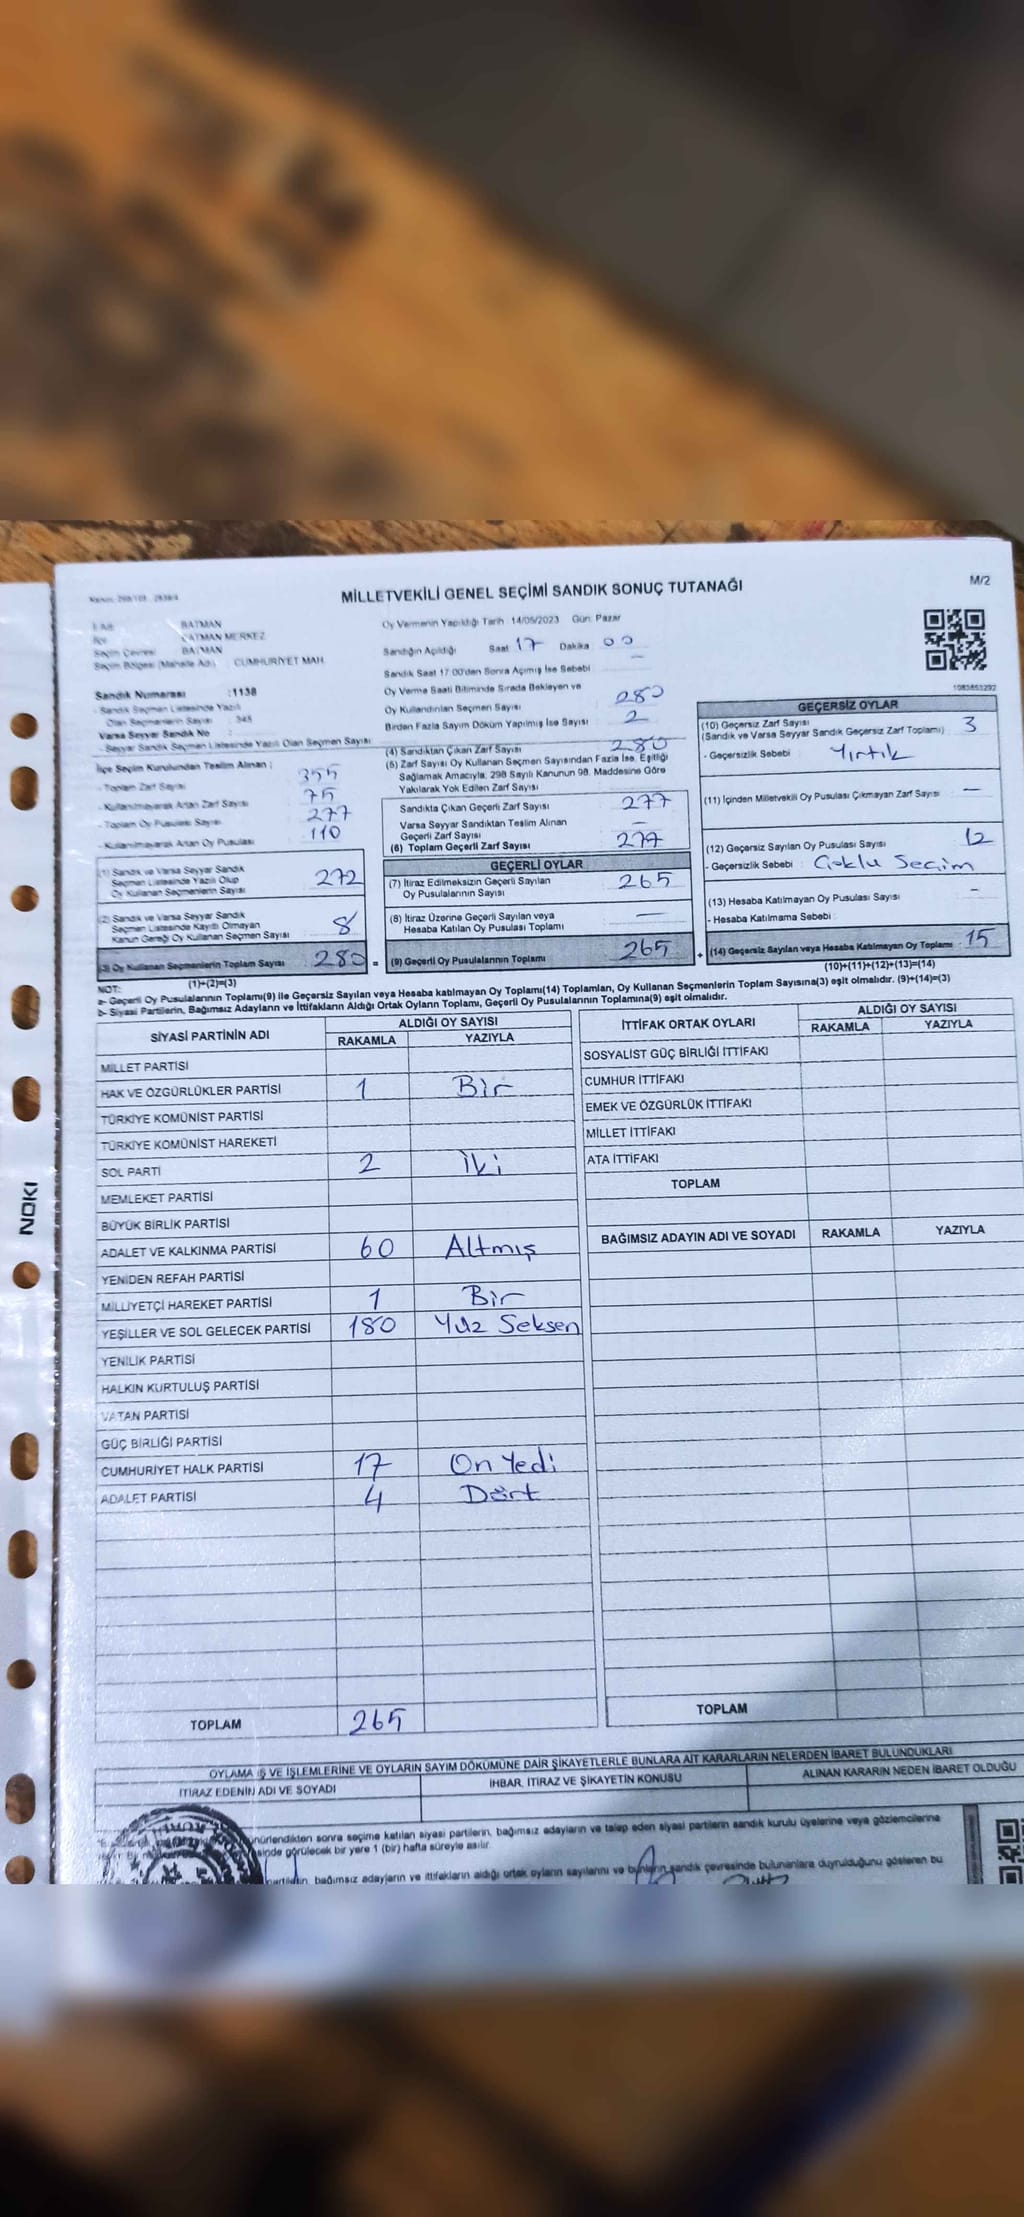 M/2
MİLLETVEKİLİ GENEL SEÇİMİ SANDIK SONUÇ TUTANAĞI
BATMAN
BATMAN MERKEZ
Seçim Çevresi BATMAN
Seçim Bölgesi (Mahalle Adı) CUMHURİYET MAH.
Sandık Numarası :1138
- Sandık Seçmen Listesinde Yazılı
Olan Seçmenlerin Sayısı : 345
Varsa Seyyar Sandık No :
- Seyyar Sandık Seçmen Listesinde Yazılı Olan Seçmen Sayısı
İlçe Seçim Kurulundan Teslim Alınan :
- Toplam Zarf Sayısı 355
- Kullanılmayarak Artan Zarf Sayısı 75
- Toplam Oy Pusulası Sayısı 277
- Kullanılmayarak Artan Oy Pusulası 110
(1) Sandık ve Varsa Seyyar Sandık
Seçmen Listesinde Yazılı Olup
Oy Kullanan Seçmenlerin Sayısı 272
(2) Sandık ve Varsa Seyyar Sandık
Seçmen Listesinde Kayıtlı Olmayan
Kanun Gereği Oy Kullanan Seçmen Sayısı 8
(3) Oy Kullanan Seçmenlerin Toplam Sayısı 280 =
(1)+(2)=(3)
Oy Vermenin Yapıldığı Tarih : 14/05/2023 Gün: Pazar
Sandığın Açıldığı Saat 17 Dakika 00
Sandık Saat 17:00'den Sonra Açımış İse Sebebi —
Oy Verme Saati Bitiminde Sırada Bekleyen ve
Oy Kullandırılan Seçmen Sayısı 280
Birden Fazla Sayım Döküm Yapılmış İse Sayısı 2
(4) Sandıktan Çıkan Zarf Sayısı 280
(5) Zarf Sayısı Oy Kullanan Seçmen Sayısından Fazla İse, Eşitliği
Sağlamak Amacıyla, 298 Sayılı Kanunun 98. Maddesine Göre
Yakılarak Yok Edilen Zarf Sayısı
Sandıkta Çıkan Geçerli Zarf Sayısı 277
Varsa Seyyar Sandıktan Teslim Alınan
Geçerli Zarf Sayısı —
(6) Toplam Geçerli Zarf Sayısı 277
GEÇERLİ OYLAR
(7) İtiraz Edilmeksizin Geçerli Sayılan
Oy Pusulalarının Sayısı 265
(8) İtiraz Üzerine Geçerli Sayılan veya
Hesaba Katılan Oy Pusulası Toplamı —
(9) Geçerli Oy Pusulalarının Toplamı 265 +
1083853292
GEÇERSİZ OYLAR
(10) Geçersiz Zarf Sayısı
(Sandık ve Varsa Seyyar Sandık Geçersiz Zarf Toplamı) 3
- Geçersizlik Sebebi : Yırtık
(11) İçinden Milletvekili Oy Pusulası Çıkmayan Zarf Sayısı —
(12) Geçersiz Sayılan Oy Pusulası Sayısı 12
- Geçersizlik Sebebi : Çoklu Seçim
(13) Hesaba Katılmayan Oy Pusulası Sayısı —
- Hesaba Katılmama Sebebi :
(14) Geçersiz Sayılan veya Hesaba Katılmayan Oy Toplamı : 15
(10)+(11)+(12)+(13)=(14)
NOT:
a- Geçerli Oy Pusulalarının Toplamı(9) ile Geçersiz Sayılan veya Hesaba katılmayan Oy Toplamı(14) Toplamları, Oy Kullanan Seçmenlerin Toplam Sayısına(3) eşit olmalıdır. (9)+(14)=(3)
b- Siyasi Partilerin, Bağımsız Adayların ve İttifakların Aldığı Ortak Oyların Toplamı, Geçerli Oy Pusulalarının Toplamına(9) eşit olmalıdır.
SİYASİ PARTİNİN ADI ALDIĞI OY SAYISI
RAKAMLA YAZIYLA
MİLLET PARTİSİ
HAK VE ÖZGÜRLÜKLER PARTİSİ 1 Bir
TÜRKİYE KOMÜNİST PARTİSİ
TÜRKİYE KOMÜNİST HAREKETİ
SOL PARTİ 2 İki
MEMLEKET PARTİSİ
BÜYÜK BİRLİK PARTİSİ
ADALET VE KALKINMA PARTİSİ 60 Altmış
YENİDEN REFAH PARTİSİ
MİLLİYETÇİ HAREKET PARTİSİ 1 Bir
YEŞİLLER VE SOL GELECEK PARTİSİ 180 Yüz Seksen
YENİLİK PARTİSİ
HALKIN KURTULUŞ PARTİSİ
VATAN PARTİSİ
GÜÇ BİRLİĞİ PARTİSİ
CUMHURİYET HALK PARTİSİ 17 On Yedi
ADALET PARTİSİ 4 Dört
TOPLAM 265
İTTİFAK ORTAK OYLARI ALDIĞI OY SAYISI
RAKAMLA YAZIYLA
SOSYALİST GÜÇ BİRLİĞİ İTTİFAKI
CUMHUR İTTİFAKI
EMEK VE ÖZGÜRLÜK İTTİFAKI
MİLLET İTTİFAKI
ATA İTTİFAKI
TOPLAM
BAĞIMSIZ ADAYIN ADI VE SOYADI RAKAMLA YAZIYLA
TOPLAM
NOKI
OYLAMA İŞ VE İŞLEMLERİNE VE OYLARIN SAYIM DÖKÜMÜNE DAİR ŞİKAYETLERLE BUNLARA AİT KARARLARIN NELERDEN İBARET BULUNDUKLARI
İTİRAZ EDENİN ADI VE SOYADI İHBAR, İTİRAZ VE ŞİKAYETİN KONUSU ALINAN KARARIN NEDEN İBARET OLDUĞU
sonra seçime katılan siyasi partilerin, bağımsız adayların ve talep eden siyasi partilerin sandık kurulu üyelerine veya gözlemcilerine
görülecek bir yere 1 (bir) hafta süreyle asılır.
bağımsız adayların ve ittifakların aldığı ortak oyların sayılarını ve bunların sandık çevresinde bulunanlara duyrulduğunu gösteren bu